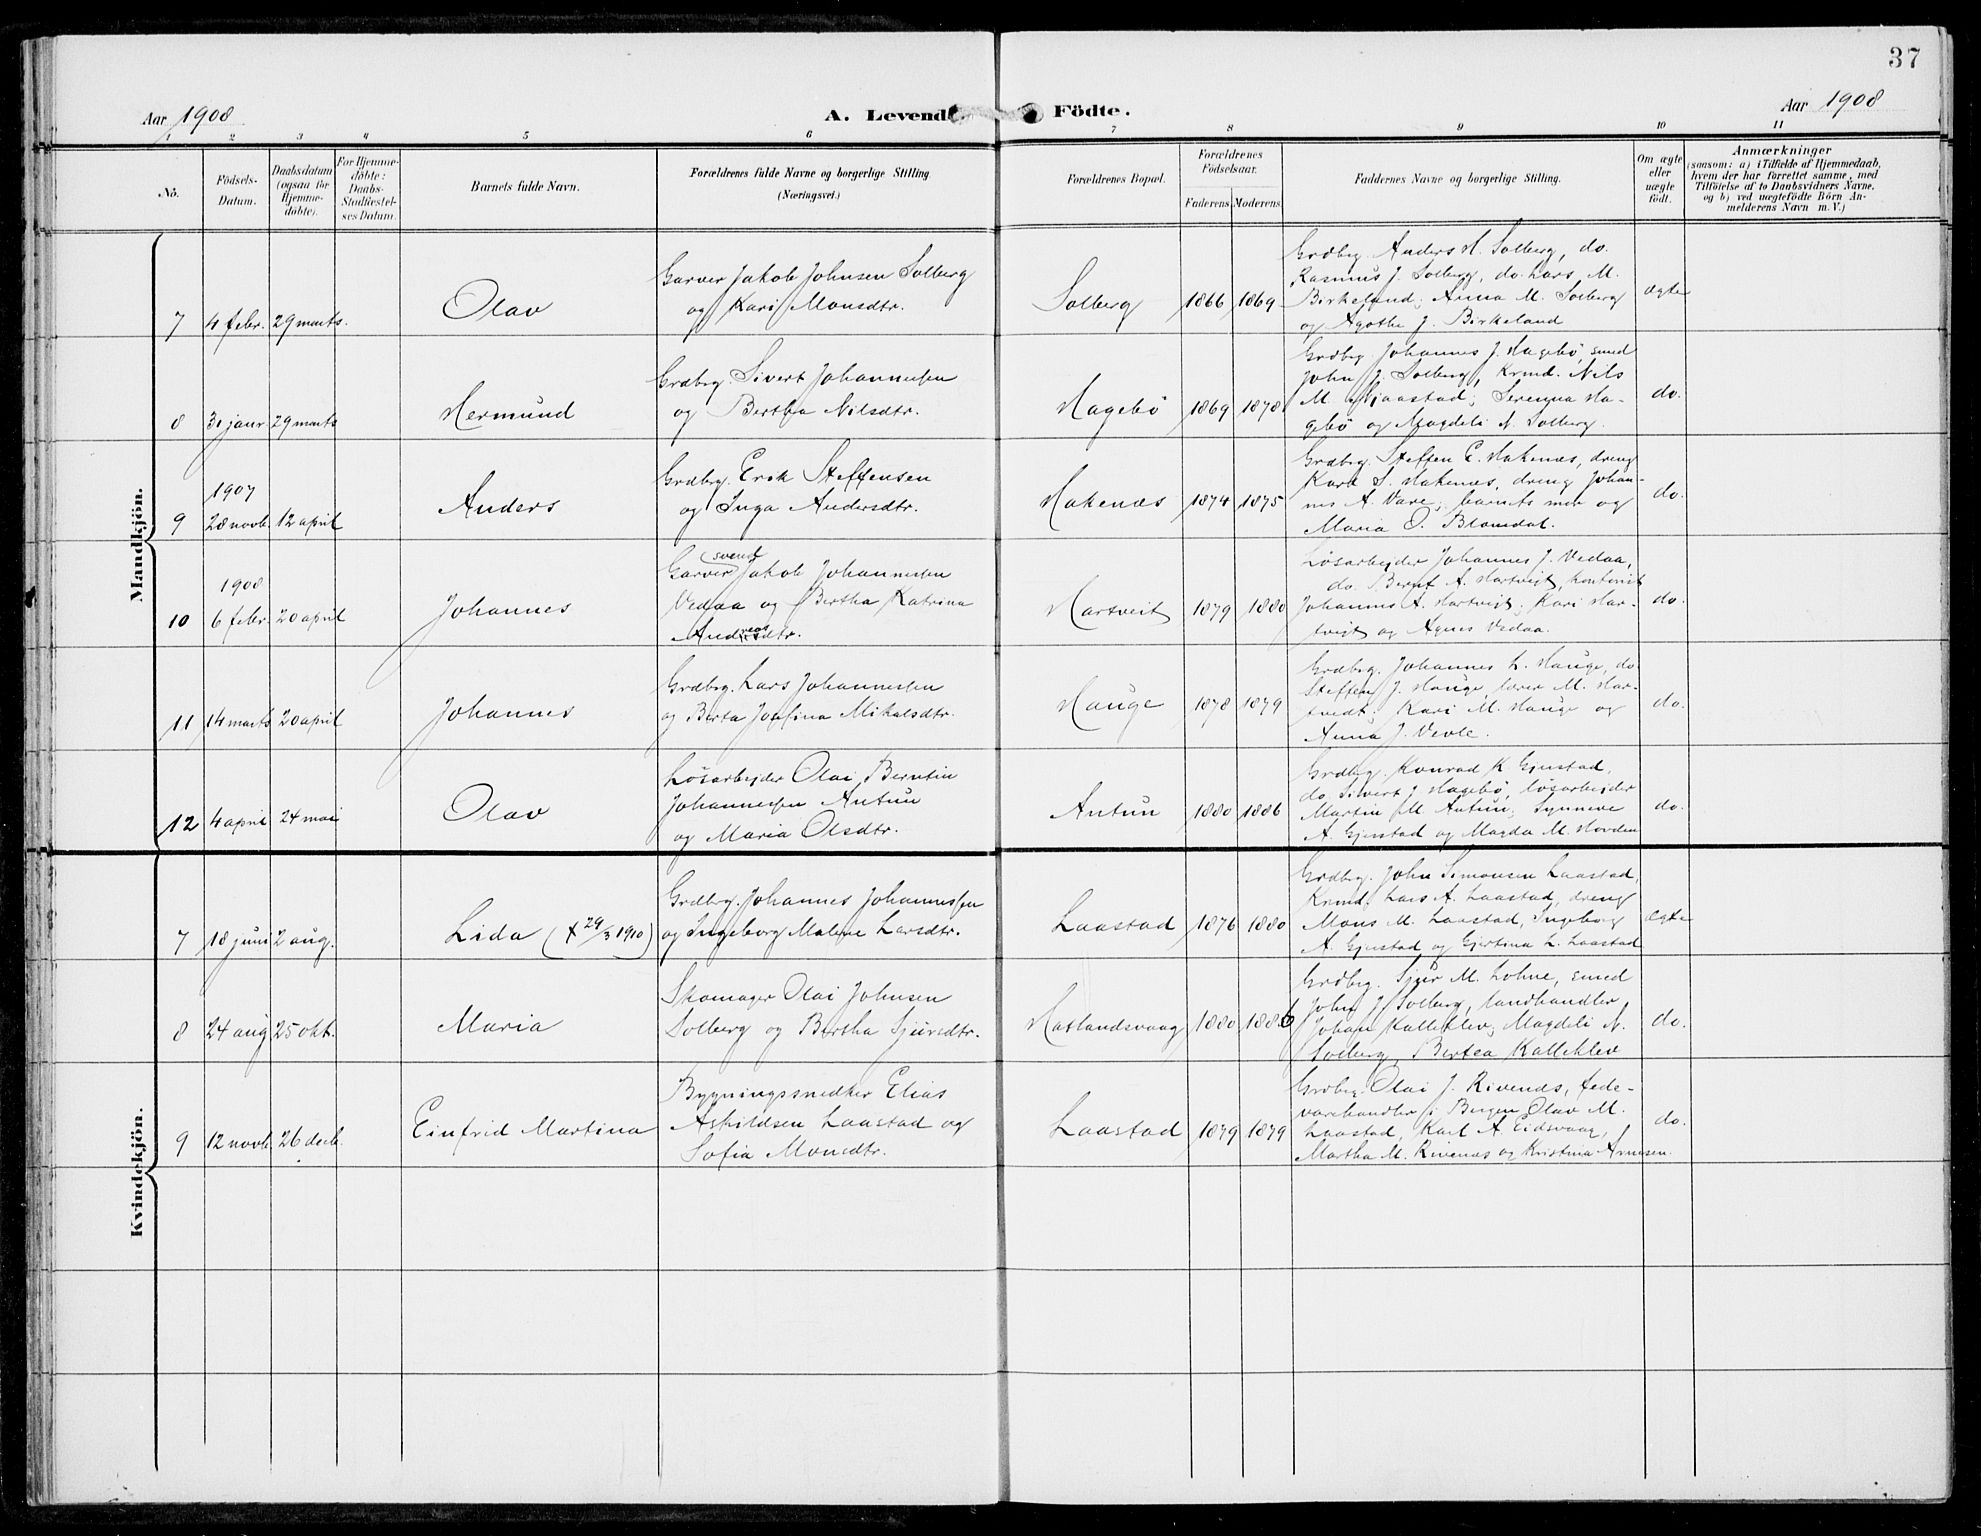 37
Aar 1908
A. Levende Födte.
Aar 1908
1 2 3 4 5 6 7 8 9 10 11
No.
Födsels-Datum.
Daabsdatum (ogsaa for Hjemme-döbte).
For Hjemme-döbte: Daabs-Stadfæstel-ses Datum.
Barnets fulde Navn.
Forældrenes fulde Navne og borgerlige Stilling (Næringsvei.)
Forældrenes Bopæl.
Forældrenes Födselsaar.
Faderens Moderens
Faddernes Navne og borgerlige Stilling.
Om ægte eller uægte födt.
Anmærkninger
(saasom: a) i Tilfælde af Hjemmedaab, hvem der har forrettet samme, med Tilföielse af to Daabsvidners Navne, og b) ved uægtefödte Börn An-melderens Navn m. V.)
Mandkjön.
7 4 febr. 29 marts. Olav
Garver Jakob Johnsen Solberg
og Kari Monsdtr.
Solberg 1866 1869
Grdbrg. Anders H. Solberg, do.
Rasmus J. Solberg, do. Lars M.
Birkeland; Anna M. Solberg
og Agothe J. Birkeland
ægte
8 31 janr. 29 marts Hermund
Grdbrg. Sivert Johannessen
og Bertha Nilsdtr.
Hagebö 1869 1878
Grdbrg. Johannes J. Hagebö, smed
John J. Solberg, Krmd. Nils
M. Mjaastad; Serenna Ha-
gebö og Magdeli N. Solberg.
do.
9 1907 28 novb. 12 april Anders
Grdbrg. Erik Steffensen
og Inga Andersdtr.
Hakenæs 1874 1875
Grdbrg. Steffen E. Hakenæs, dreng
Karl S. Hakenæs, dreng Johan-
nes A. Vare; barnets mor og
Maria O. Blomdal.
do.
10 1908 6 febr. 20 april Johannes
Garver svend Jakob Johannessen
Vedaa og Bertha Katrina
Andreasdtr.
Hartveit 1879 1880
Løsarbejder Johannes J. Vedaa,
do. Bernt A. Hartvigt, kontorist
Johannes A. Hartvigt; Kari Har-
tvigt og Agnes Vedaa.
do.
11 14 marts 20 april Johannes
Grdbrg. Lars Johannessen
og Berta Josefina Mikalsdtr.
Hauge 1878 1879
Grdbrg. Johannes L. Hauge, do.
Steffen J. Hauge, lærer M. Har-
tvedt; Kari M. Hauge og
Anna J. Vevle.
do.
12 4 april 24 mai Olav
Løsarbejder Olai Berntin
Johannessen Antun
og Maria Olsdtr.
Antun 1880 1886
Grdbrg. Konrad K. Gjerstad,
do. Sivert J. Hagebö, løsarbejder
Martin M. Antun; Synneve
A. Gjerstad og Magda M. Hovden
do.
Kvindekjön.
7 18 juni 2 aug. Lida (✝ 29/3 1910)
Grdbrg. Johannes Johannessen
og Ingeborg Malene Larsdtr.
Laastad 1876 1880
Grdbrg. John Simonsen Laastad,
Krmd. Lars A. Laastad, dreng
Mons M. Laastad, Ingeborg
A. Gjerstad og Gjertina L. Laastad
ægte
8 24 aug 25 okt. Maria
Skomager Olai Johnsen
Solberg og Bertha Sjursdtr.
Hatlandsvaag 1880 1886
Grdbrg. Sjur M. Lohne, smed
John J. Solberg, landhandler
Johan Kalleklev; Magdeli N.
Solberg, Bertea Kalleklev
do.
9 12 novb. 26 decb. Einfrid Martina
Bygningssnedker Elias
Askildsen Laastad og
Sofia Monsdtr.
Laastad 1879 1879
Grdbrg. Olai J. Rivenæs, fede-
varehandler i Bergen Olav M.
Laastad, Karl A. Eidsvaag,
Martha M. Rivenæs og Kristina Arnesen.
do.